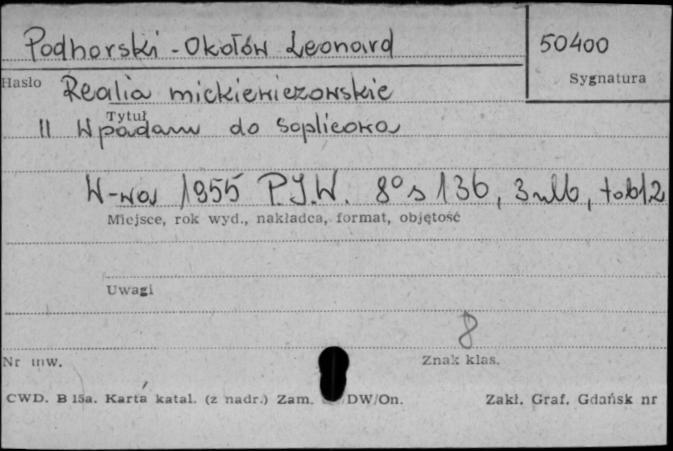 Podhorski-Okołów Leonard
50400
Hasło
Sygnatura
Realia mickiewiczowskie
Tytuł
II Wpadam do Soplicowa
W-wa 1955 P.I.W. 8° s 136, 3 nlb, tabl 2
Miejsce, rok wyd., nakładca, format, objętość
Uwagi
8
Nr inw.
Znak klas.
CWD. B 15a. Karta katal. (z nadr.) Zam. DW/On.
Zakł. Graf. Gdańsk nr